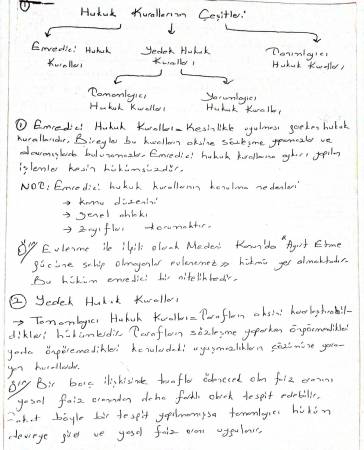 ①
Hukuk Kurallarının Çeşitleri
Emredici Hukuk Yedek Hukuk Tanımlayıcı
Kuralları Kuralları Hukuk Kuralları
Tamamlayıcı Yorumlayıcı
Hukuk Kuralları Hukuk Kuralları
① Emredici Hukuk Kuralları = Kesinlikle uyulması gereken hukuk
kurallarıdır. Bireyler bu kuralların aksine sözleşme yapamazlar ve
davranışlarda bulunamazlar. Emredici hukuk kurallarına aykırı yapılan
işlemler kesin hükümsüzdür.
NOT: Emredici hukuk kurallarının konulma nedenleri
→ kamu düzenini
→ genel ahlakı
→ zayıfları korumaktır.
Ör/ Evlenme ile ilgili olarak Medeni Kanun'da "Ayırt Etme
gücüne sahip olmayanlar evlenemez" hükmü yer almaktadır.
Bu hüküm emredici bir niteliktedir.
② Yedek Hukuk Kuralları
→ Tamamlayıcı Hukuk Kuralları = Tarafların aksini kararlaştırabil-
dikleri hükümleridir. Tarafların sözleşme yaparken öngörmedikleri
yada öngöremedikleri konulardaki uyuşmazlıkların çözümüne yara-
yan kurallardır.
Ör/ Bir borç ilişkisinde taraflar ödenecek olan faiz oranını
yasal faiz oranından daha farklı olarak tespit edebilir.
Fakat böyle bir tespit yapılmamışsa tamamlayıcı hüküm
devreye girer ve yasal faiz oranı uygulanır.